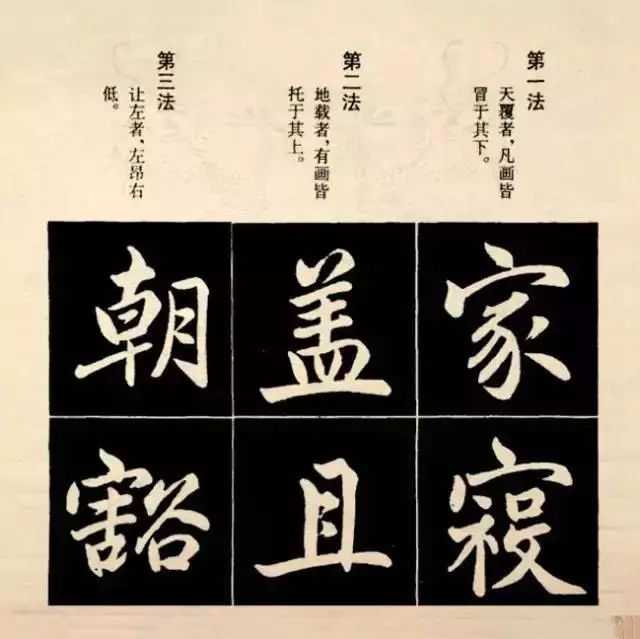 第一法
天覆者，凡画皆
冒于其下。
家
第二法
地载者，有画皆
托于其上。
盖
且
第三法
让左者、左昂右
低。
朝
豁